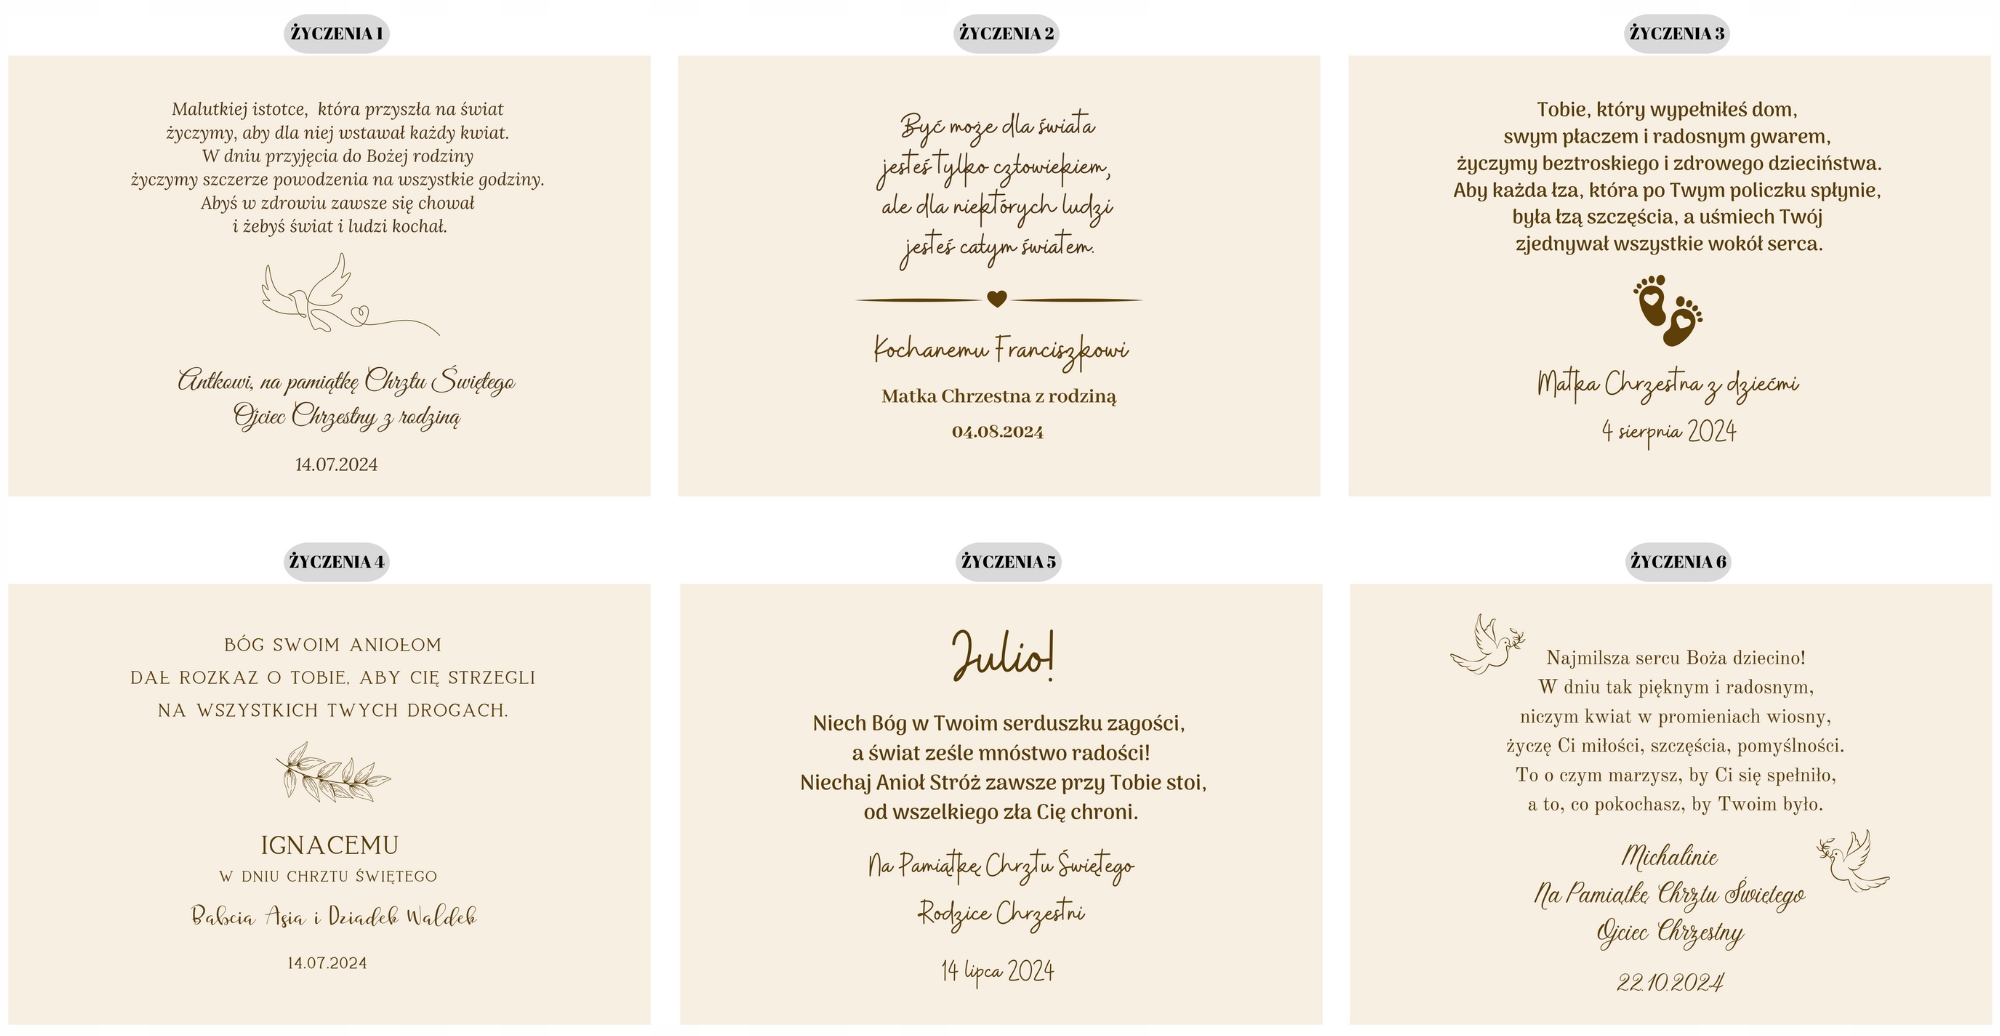 ŻYCZENIA 1
Malutkiej istotce, która przyszła na świat
życzymy, aby dla niej wstawał każdy kwiat.
W dniu przyjęcia do Bożej rodziny
życzymy szczerze powodzenia na wszystkie godziny.
Abyś w zdrowiu zawsze się chował
i żebyś świat i ludzi kochał.
Antkowi, na pamiątkę Chrztu Świętego
Ojciec Chrzestny z rodziną
14.07.2024
ŻYCZENIA 2
Być może dla świata
jesteś tylko człowiekiem,
ale dla niektórych ludzi
jesteś całym światem.
Kochanemu Franciszkowi
Matka Chrzestna z rodziną
04.08.2024
ŻYCZENIA 3
Tobie, który wypełniłeś dom,
swym płaczem i radosnym gwarem,
życzymy beztroskiego i zdrowego dzieciństwa.
Aby każda łza, która po Twym policzku spłynie,
była łzą szczęścia, a uśmiech Twój
zjednywał wszystkie wokół serca.
Matka Chrzestna z dziećmi
4 sierpnia 2024
ŻYCZENIA 4
BÓG SWOIM ANIOŁOM
DAŁ ROZKAZ O TOBIE, ABY CIĘ STRZEGLI
NA WSZYSTKICH TWYCH DROGACH.
IGNACEMU
W DNIU CHRZTU ŚWIĘTEGO
Babcia Asia i Dziadek Waldek
14.07.2024
ŻYCZENIA 5
Julio!
Niech Bóg w Twoim serduszku zagości,
a świat ześle mnóstwo radości!
Niechaj Anioł Stróż zawsze przy Tobie stoi,
od wszelkiego zła Cię chroni.
Na Pamiątkę Chrztu Świętego
Rodzice Chrzestni
14 lipca 2024
ŻYCZENIA 6
Najmilsza sercu Boża dziecino!
W dniu tak pięknym i radosnym,
niczym kwiat w promieniach wiosny,
życzę Ci miłości, szczęścia, pomyślności.
To o czym marzysz, by Ci się spełniło,
a to, co pokochasz, by Twoim było.
Michalinie
Na Pamiątkę Chrztu Świętego
Ojciec Chrzestny
22.10.2024